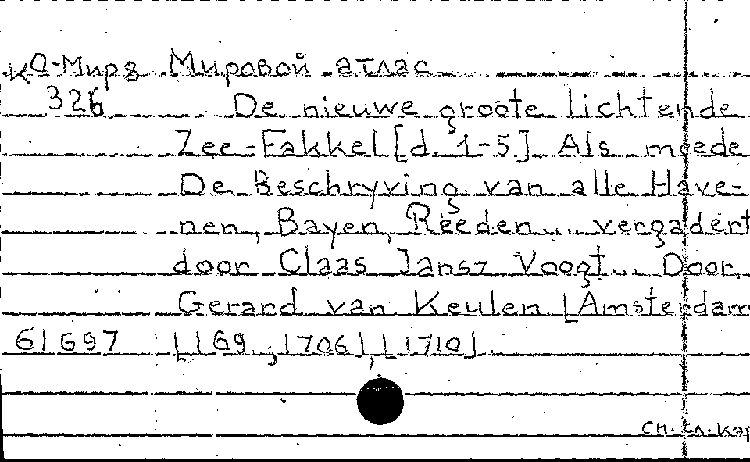 К О-Мир8 Мировой атлас
32б De nieuwe groote lichtende
Zee-Fakkel [d. 1-5] Als meede
De Beschryving van alle Have-
nen, Bayen, Reeden... vergadert
door Claas Jansz Voogt... Door
Gerard van Keulen [Amsterdam
61697 [169 , 1706], [1710]
См. сл. кар